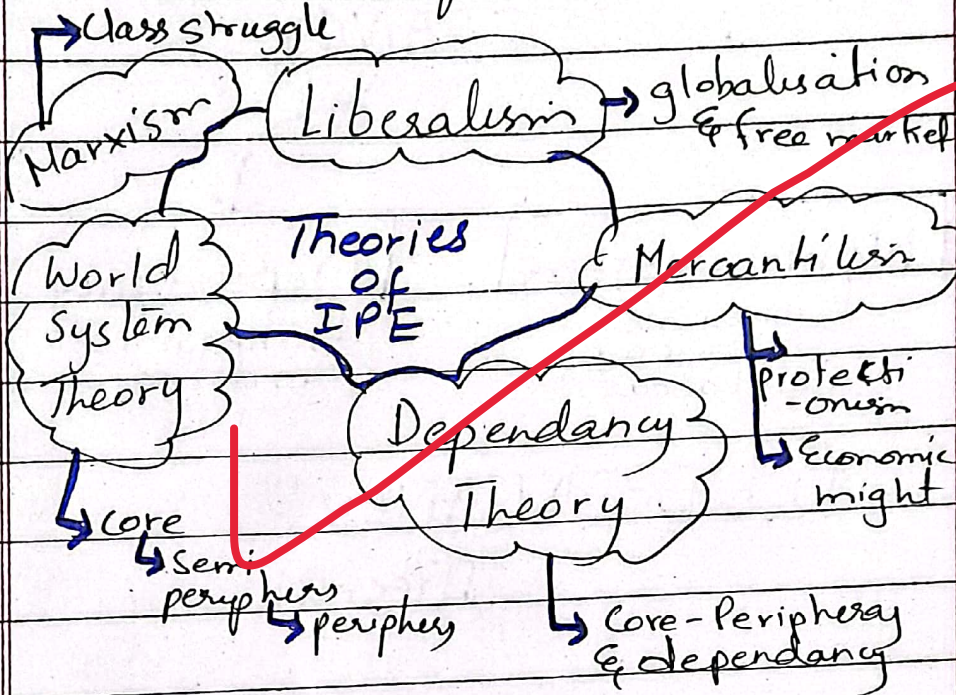 Class struggle
Marxism
Liberalism
globalisation
& free market
Theories
Of
IPE
World
System
Theory
Mercantilism
protecti
-onism
Economic
might
Dependancy
Theory
Core
Semi
periphery
periphery
Core-Periphery
& dependancy